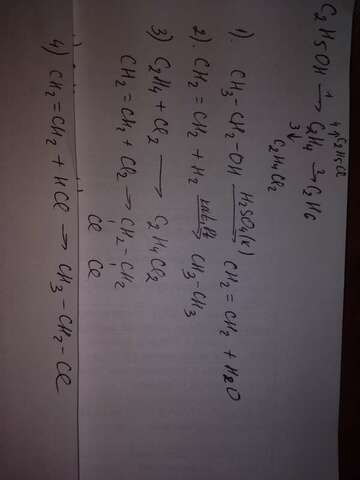 C2H5OH 1→ C2H4 2→ C2H6
4↑ C2H5Cl
3↓ C2H4Cl2
1). CH3-CH2-OH H2SO4(к)→ CH2=CH2 + H2O
2). CH2=CH2 + H2 → CH3-CH3
3) C2H4 + Cl2 → C2H4Cl2
CH2=CH2 + Cl2 → CH2-CH2
Cl Cl
4) CH2=CH2 + HCl → CH3-CH2-Cl